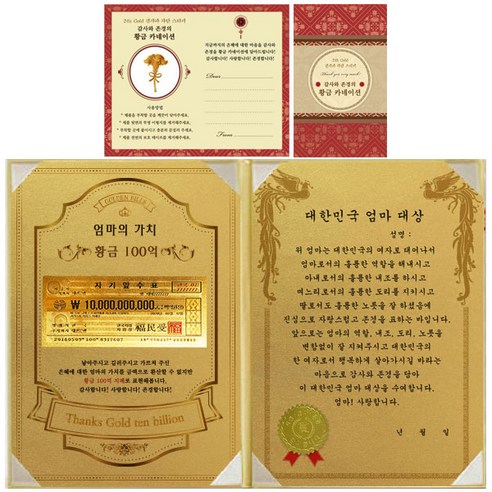 24k Gold
감사와 존경의
황금 카네이션
사용방법
Dear
From
24k Gold
Thank you very much
감사와 존경의
황금 카네이션
GOLDEN BILLS
엄마의 가치
황금 100억
자기앞수표
₩ 10,000,000,000
福民受
낳아주시고 길러주시고 가르쳐 주신
은혜에 대한 엄마의 가치를 금액으로 환산할 수 없지만
황금 100억 지폐로 표현해봅니다.
감사합니다! 사랑합니다! 존경합니다!
Thanks Gold ten billion
대한민국 엄마 대상
성명 :
위 엄마는 대한민국의 여자로 태어나서
엄마로서의 훌륭한 역할을 해내시고
아내로서의 훌륭한 내조를 하시고
며느리로서의 훌륭한 도리를 지키시고
딸로서도 훌륭한 노릇을 잘 하셨음에
진심으로 자랑스럽고 존경을 표하는 바입니다.
앞으로는 엄마의 역할, 내조, 도리, 노릇을
변함없이 잘 지켜주시고 대한민국의
한 여자로서 행복하게 살아가시길 바라는
마음으로 감사와 존경을 담아
이 대한민국 엄마 대상을 수여합니다.
엄마! 사랑합니다.
년 월 일